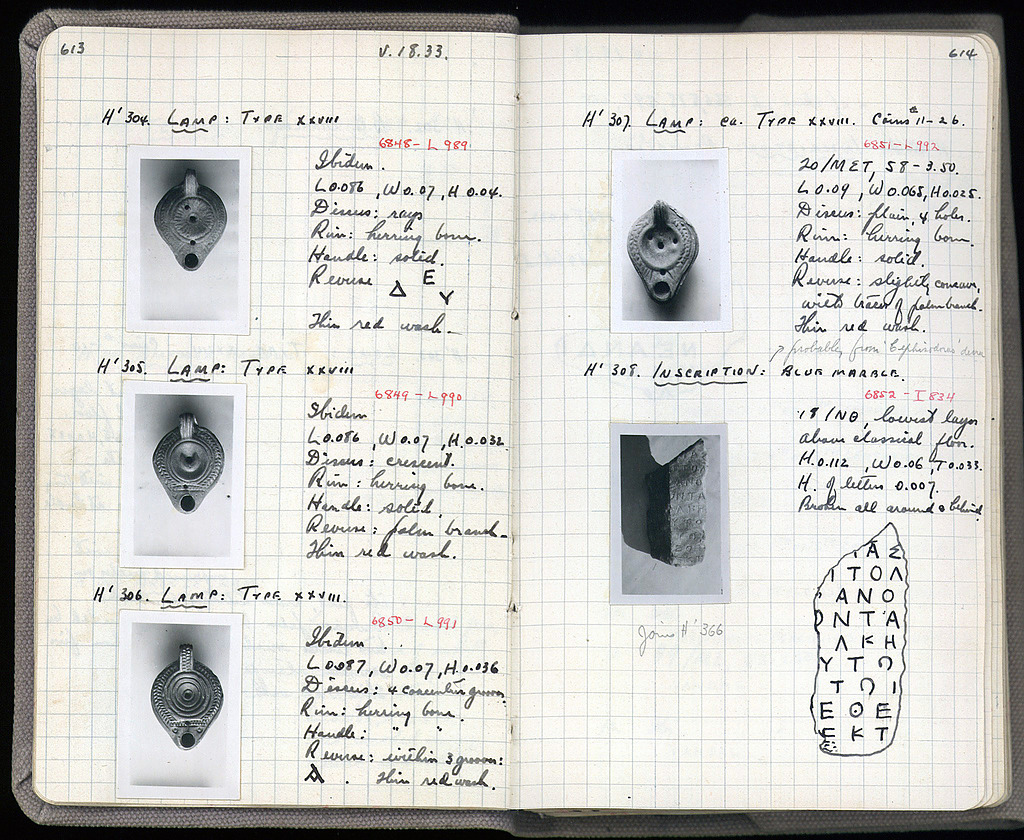 613
V. 18. 33.
H' 304. LAMP: TYPE XXVIII
6848 - L 989
Ibidem.
L 0.086, W 0.07, H 0.04.
Discus: rays
Rim: herring bone.
Handle: solid.
Reverse E
Δ Y
Thin red wash.
H' 305. LAMP: TYPE XXVIII
6849 - L 990
Ibidem
L 0.086, W 0.07, H 0.032
Discus: crescent.
Rim: herring bone.
Handle: solid.
Reverse: palm branch.
Thin red wash.
H' 306. LAMP: TYPE XXVIII.
6850 - L 991
Ibidem
L 0.087, W 0.07, H 0.036
Discus: 4 concentric grooves
Rim: herring bone.
Handle: " "
Reverse: within 3 grooves:
Thin red wash.
614
H' 307. LAMP: ca. TYPE XXVIII. Coins 11-26.
6851 - L 992
20/ΜΕΤ, 58 - 3.50.
L 0.09, W 0.065, H 0.025.
Discus: plain, 4 holes.
Rim: herring bone.
Handle: solid.
Reverse: slightly concave,
with traces of palm branch.
Thin red wash.
probably from
H' 308. INSCRIPTION: BLUE MARBLE.
6852 - I 834
18/ΝΘ, lowest layer
above classical floor.
H. 0.112, W 0.06, T 0.033.
H. of letters 0.007.
Broken all around & behind.
Α Σ
Ι Τ Ο Λ
Α Ν Ο
Ο Ν Τ Α
Λ Κ Η
Υ Τ Ω
Τ Ω Ι
Ε Θ Ε
Ε Κ Τ
Joins H' 366